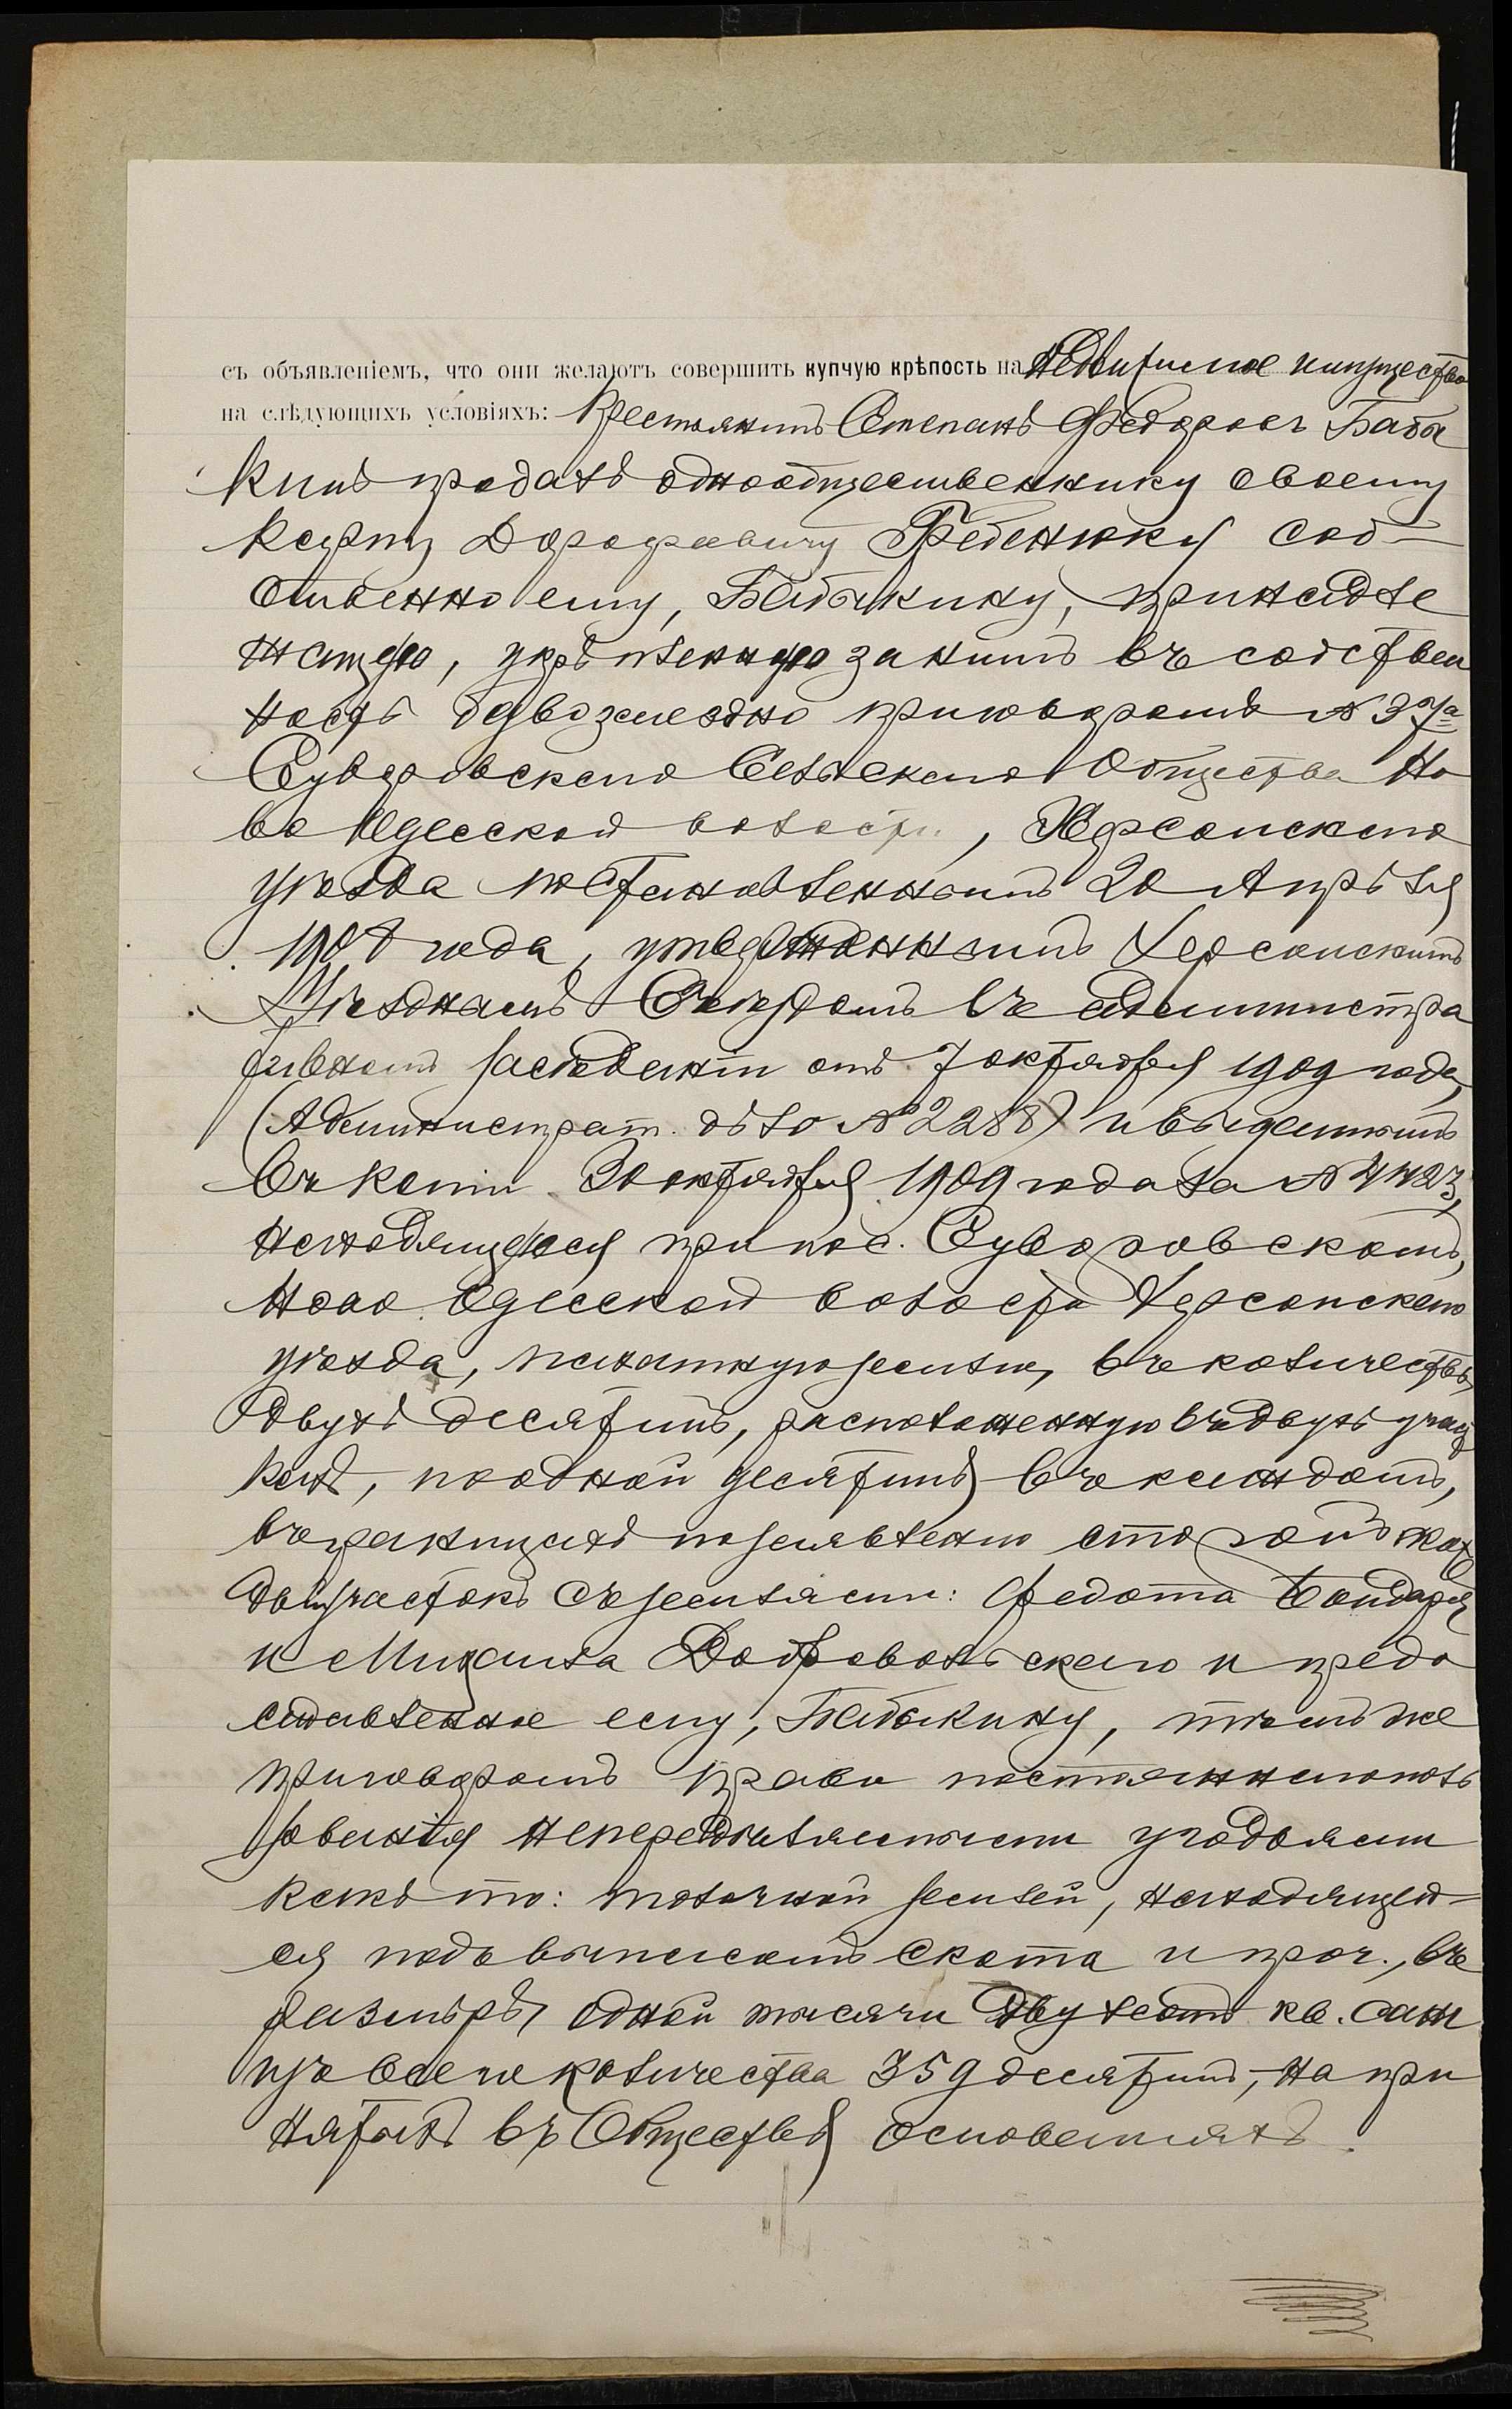 съ объявленіемъ, что они желаютъ совершить купчую крѣпость на недвижимое имущество
на слѣдующихъ условіяхъ: Крестьянинъ Степанъ Федоровъ Бабы
кинъ продалъ однообщественнику своему
Карпу Дорофеевичу Феденюку соб-
ственно ему, Бабыкину, принадле
жащую, укрѣпленную за нимъ въ собствен
ность безвозмездно приговоромъ №
Суворовскаго Сельскаго Общества Но
во Одесской волости, Херсонскаго
уѣзда постановленнымъ 20 Апрѣля
года, утвержденнымъ Херсонскимъ
Уѣзднымъ Съѣздомъ въ администра
тивномъ засѣданіи отъ 7 октября 1909 года,
(Административ. дѣло № 2288) и выданнымъ
въ копіи 30 октября 1909 года за № 4423,
находящуюся при пос. Суворовскомъ,
Ново Одесской волости Херсонскаго
уѣзда, пахатную землю, въ количествѣ
двухъ десятинъ, расположенную въ двухъ участ
кахъ, по одной десятинѣ въ каждомъ,
въ границахъ по заявленію сторонъ каж
дый участокъ съ землями: Федота Бондаря
и Михаила Добровольскаго и предо
ставленное ему, Бабыкину, тѣмъ же
приговоромъ право постояннаго поль
зованія непередѣляемыми угодьями
какъ то: толочной землей, находящей-
ся подъ выпасомъ скота и проч., въ
размѣрѣ одной тысячи двухсотъ кв. саж
изъ всего количества 359 десятинъ, на при
нятыхъ въ Обществѣ основаніяхъ.